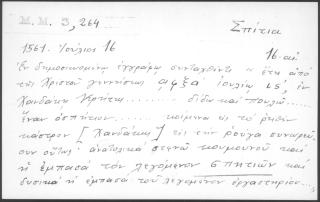 Μ.Μ. 3, 264
Σπίτια
1561. Ἰούλιος 16
16-αι
Ἐν δημοσιευμένῃ ἐγγράφῳ συνταχθέντι ἔτει ἀπὸ
τῆς Χριστοῦ γεννήσεως αφξα Ἰουλίω ις, ἐν
Χάνδακι Κρήτης........ δίδω καὶ πουλῶ.....
ἕναν ὁσπήτιον..... κείμενα εἰς τὸ ῥηθὲν
κάστρον [Χάνδακα] εἰς τὴν ροῦγα
οὕτως· ἀνατολικὰ στενὸ κουμουνοῦ καὶ
ἡ ἐμπασὰ τὸν λεγόμενον Σπητιῶν καὶ
δυσικὰ ἡ ἐμπασὰ τοῦ λεγομένου ἐργαστηρίου...